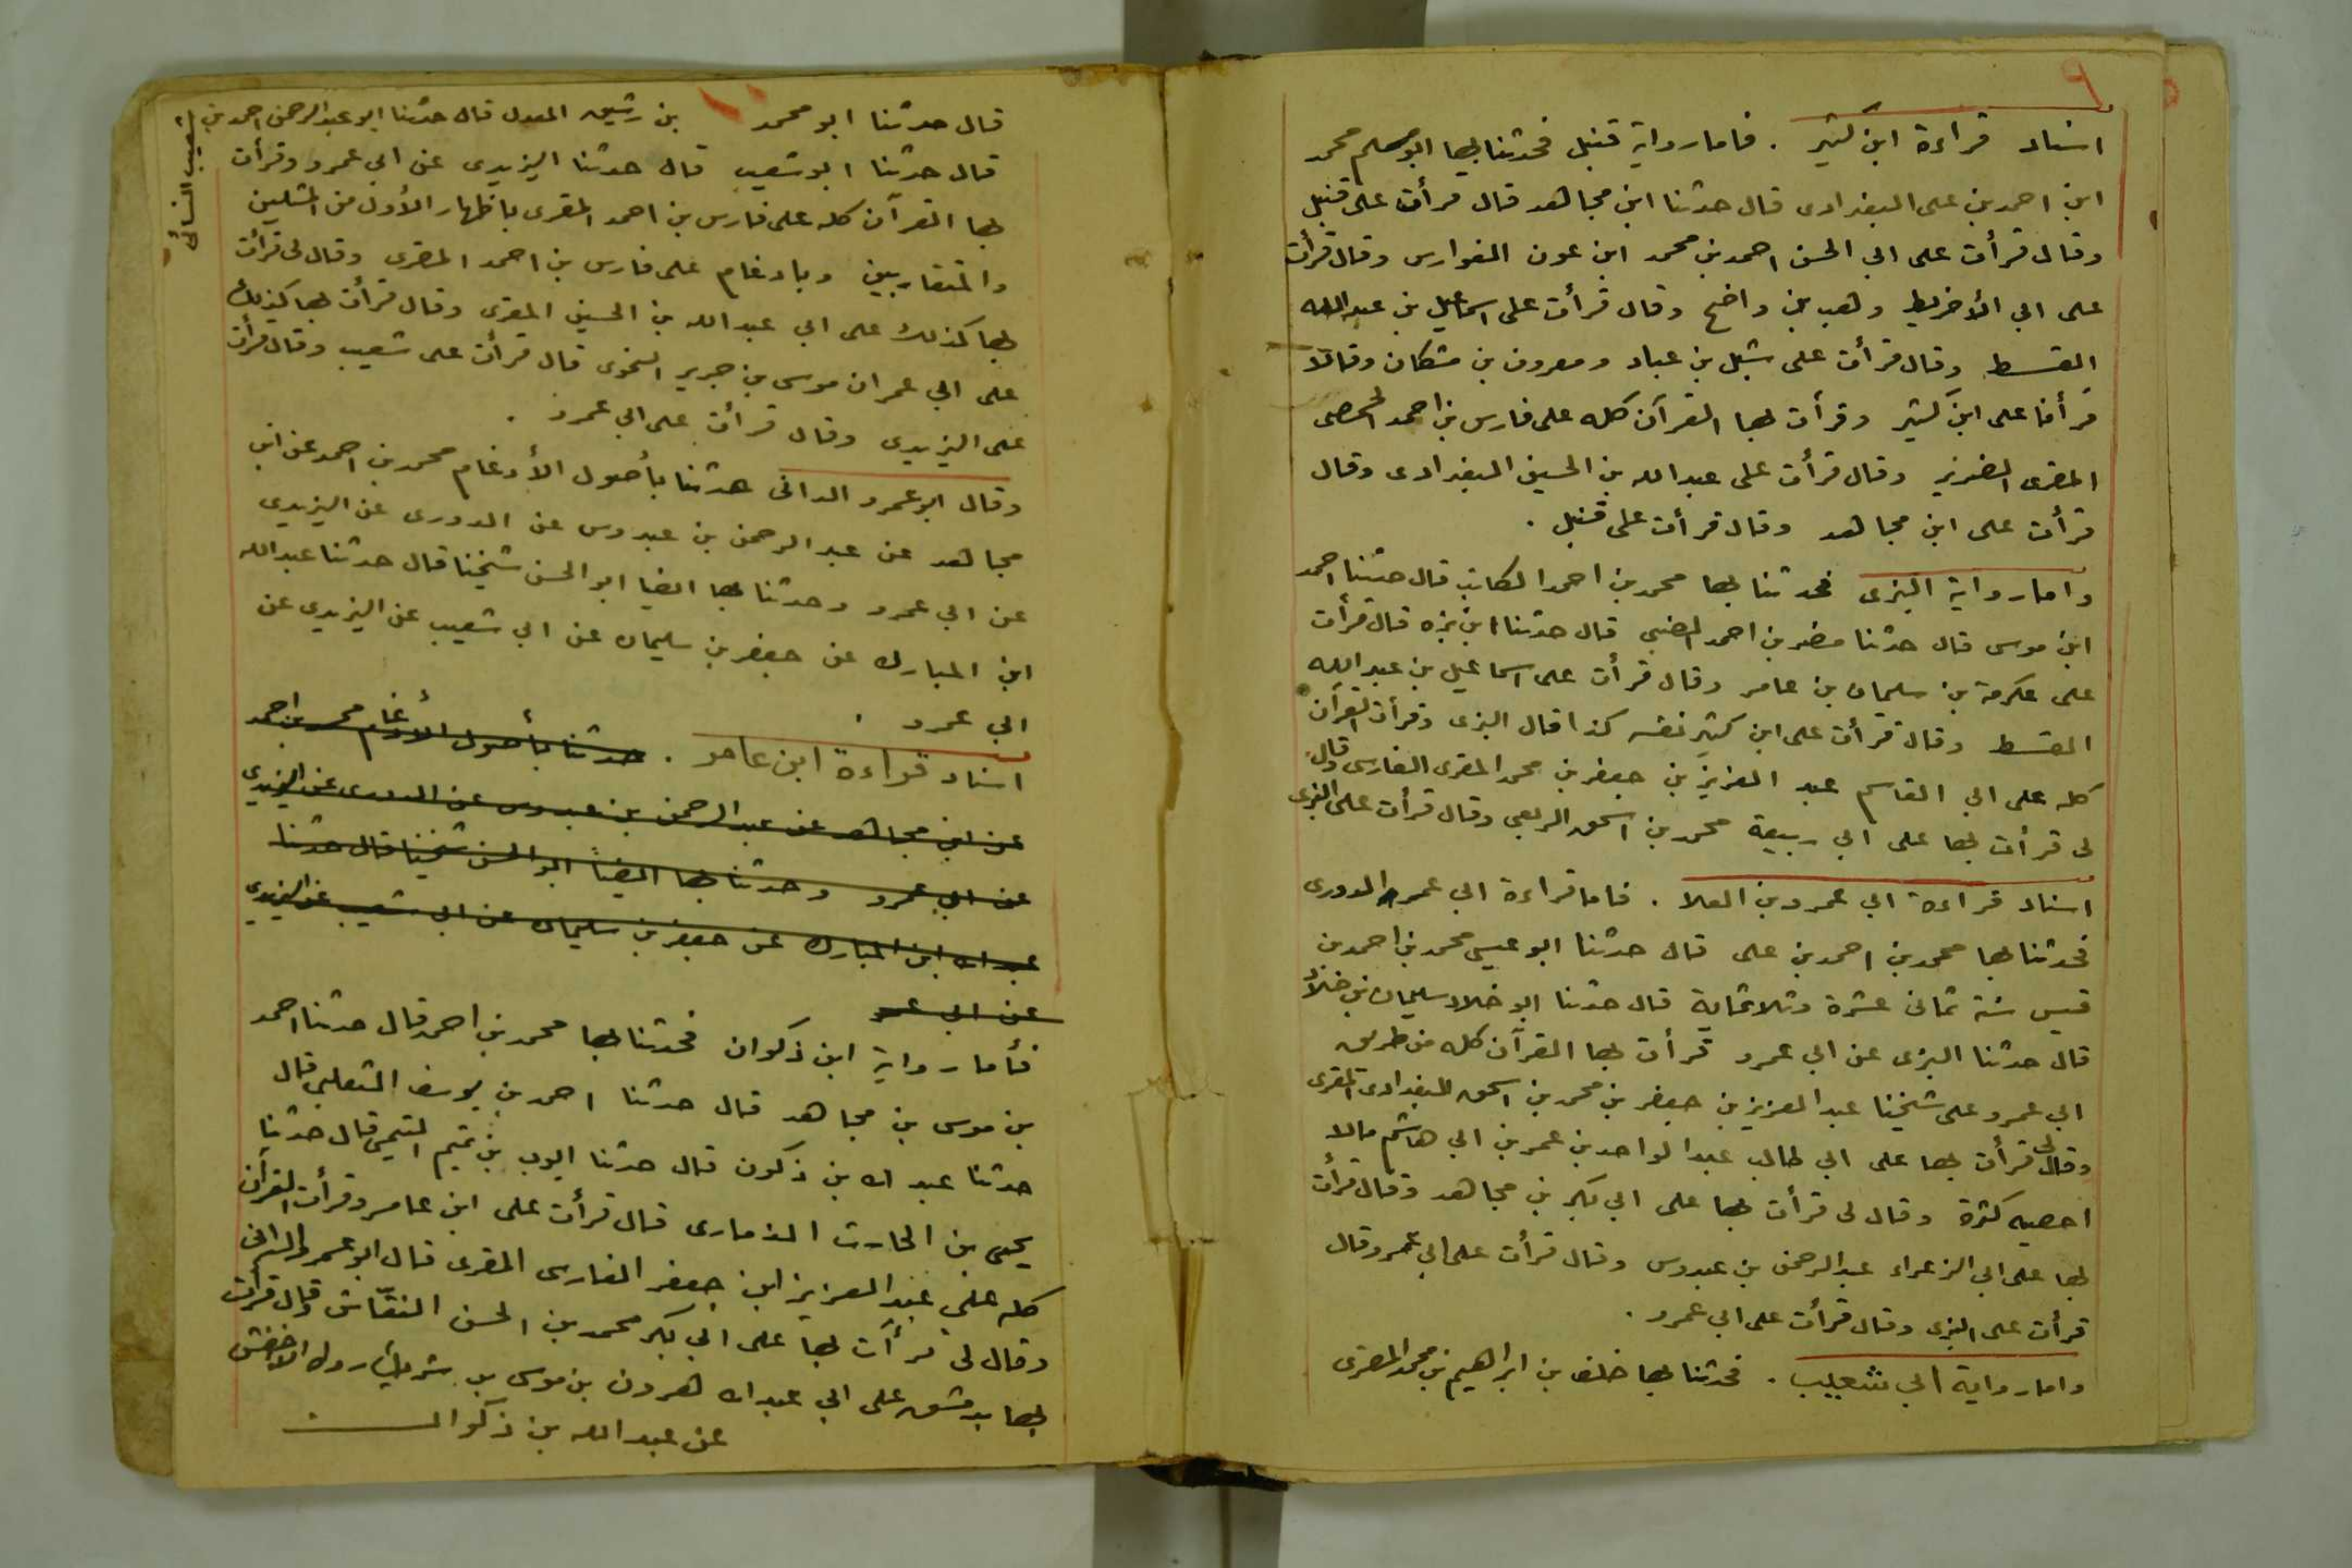 ٩
اسناد قراءة ابن كثير . فاما رواية قنبل فحدثنا بها ابو مسلم محمد
ابن احمد بن على البغدادى قال حدثنا ابن مجاهد قال قرأت على قنبل
وقال قرأت على ابي الحسن احمد بن محمد ابن عون الفوارس وقال قرأت
على ابي الأخريط وهب بن واضح وقال قرأت على اسماعيل بن عبد الله
القسط وقال قرأت على شبل بن عباد ومعروف بن مشكان وقالا
قرأنا على ابن كثير وقرأت بها القرآن كله على فارس بن احمد الحمصى
المقرى الضرير وقال قرأت على عبد الله بن الحسين البغدادى وقال
قرأت على ابن مجاهد وقال قرأت على قنبل .
واما رواية البزى فحدثنا بها محمد بن احمد الكاتب قال حدثنا احمد
ابن موسى قال حدثنا مضر بن احمد الضبي قال حدثنا ابن بزه قال قرأت
على عكرمة بن سليمان بن عامر وقال قرأت على اسماعيل بن عبد الله
القسط وقال قرأت على ابن كثير نفسه كذا قال البزى وقرأت القرآن
كله على ابي القاسم عبد العزيز بن جعفر بن محمد المقرى الفارسى وقال
لى قرأت بها على ابي ربيعة محمد بن اسحق الربعى وقال قرأت على البزى
اسناد قراءة ابي عمرو بن العلا . فاما قراءة ابي عمر الدورى
فحدثنا بها محمد بن احمد بن على قال حدثنا ابو عيسى محمد بن احمد بن
قيس سنة ثمانى عشرة وثلاثماية قال حدثنا ابو خلاد سليمان بن خلاد
قال حدثنا البزى عن ابي عمرو قرأت بها القرآن كله من طريق
ابي عمرو على شيخنا عبد العزيز بن جعفر بن محمد بن اسحق البغدادى المقرى
وقال لى قرأت بها على ابي طالب عبد الواحد بن عمر بن ابي هاشم مالا
احصيه كثرة وقال لى قرأت بها على ابي بكر بن مجاهد وقال قرأت
بها على ابي الزعراء عبد الرحمن بن عبدوس وقال قرأت على ابي عمر وقال
قرأت على البزى وقال قرأت على ابي عمرو .
واما رواية ابي شعيب . فحدثنا بها خلف بن ابراهيم بن محمد المقرى
قال حدثنا ابو محمد بن رشيق المعدل قال حدثنا ابو عبد الرحمن احمد بن
شعيب النسائى
قال حدثنا ابو شعيب قال حدثنا اليزيدى عن ابي عمرو وقرأت
بها القرآن كله على فارس بن احمد المقرى باظهار الأول من المثلين
والمتقاربين وبادغام على فارس بن احمد المقرى وقال لى قرأت
بها كذلك على ابي عبد الله بن الحسين المقرى وقال قرأت بها كذلك
على ابي عمران موسى بن جرير النحوى قال قرأت على شعيب وقال قرأت
على اليزيدى وقال قرأت على ابي عمرو .
وقال ابو عمرو الدانى حدثنا بأصول الأدغام محمد بن احمد عن ابن
مجاهد عن عبد الرحمن بن عبدوس عن الدورى عن اليزيدى
عن ابي عمرو وحدثنا بها ايضا ابو الحسن شيخنا قال حدثنا عبد الله
ابن المبارك عن جعفر بن سليمان عن ابي شعيب عن اليزيدى عن
ابي عمرو .
اسناد قراءة ابن عامر . حدثنا بأصول الأدغام محمد بن احمد
عن ابن مجاهد عن عبد الرحمن بن عبدوس عن الدورى عن اليزيدى
عن ابي عمرو وحدثنا بها ايضاً ابو الحسن شيخنا قال حدثنا
عبد الله ابن المبارك عن جعفر بن سليمان عن ابي شعيب عن اليزيدى
عن ابي عمر
فأما رواية ابن ذكوان فحدثنا بها محمد بن احمد قال حدثنا احمد
بن موسى بن مجاهد قال حدثنا احمد بن يوسف التغلبى قال
حدثنا عبد الله بن ذكون قال حدثنا ايوب بن تميم التميمى قال حدثنا
يحيى بن الحارث الذمارى قال قرأت على ابن عامر وقرأت القرآن
كله على عبد العزيز ابن جعفر الفارسى المقرى قال ابو عمرو الدانى
وقال لى قرأت بها على ابي بكر محمد بن الحسن النقّاش وقال قرأت
بها بدمشق على ابي عبد الله هرون بن موسى بن شريك الاخفش
عن عبد الله بن ذكوان